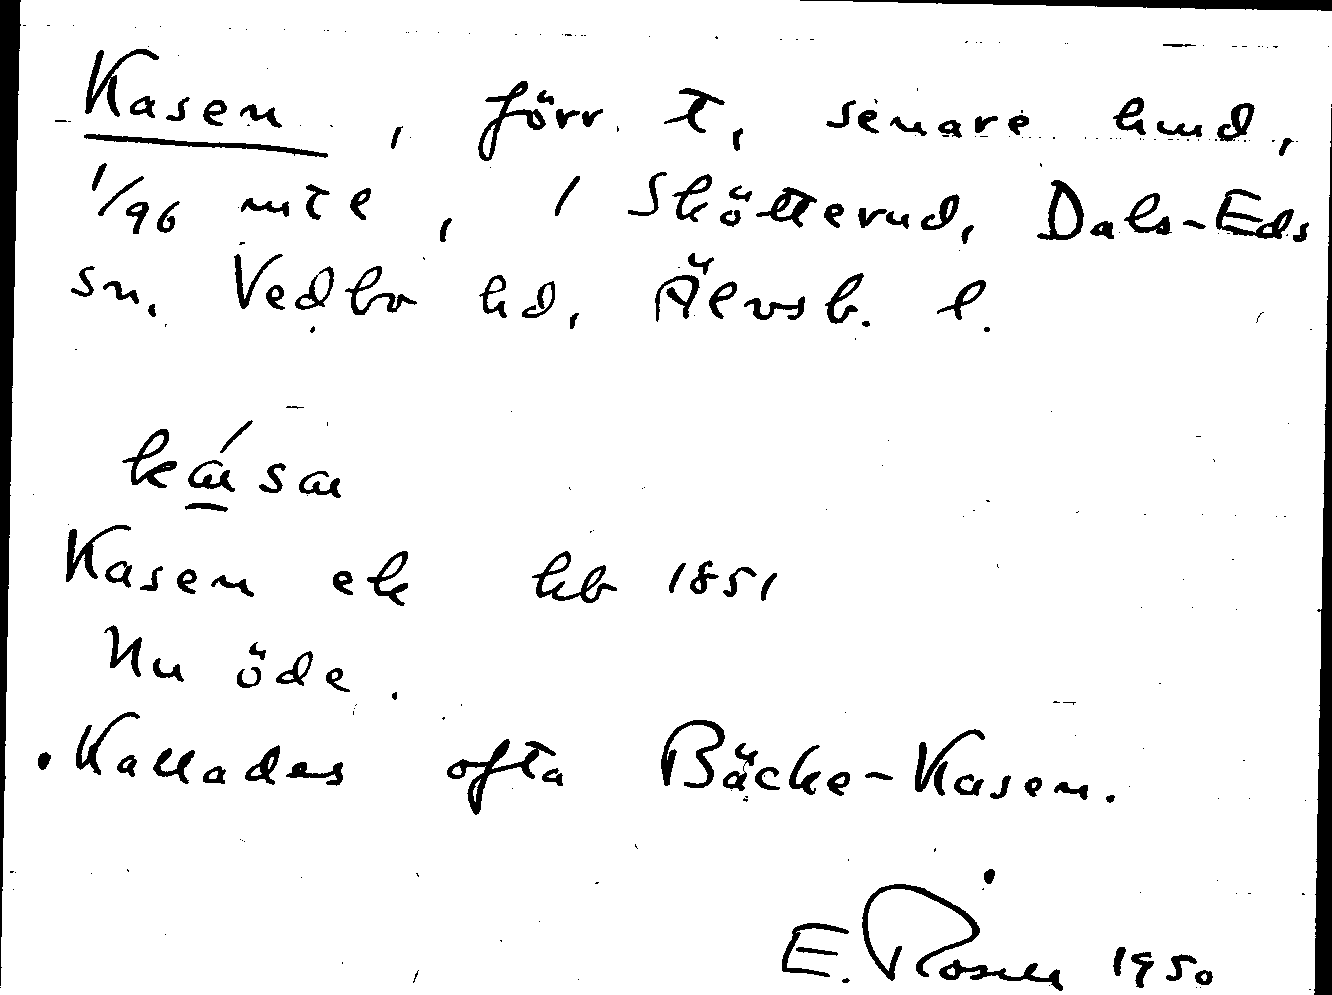 Kasen, förr t, senare hmd,
1/96 mtl, / Skötterud, Dals-Eds
sn. Vedbo hd, Älvsb. l.
kása
Kasen ek hb 1851
Nu öde.
. Kallades ofta Bäcke-Kasen.
E. Rosell 1950